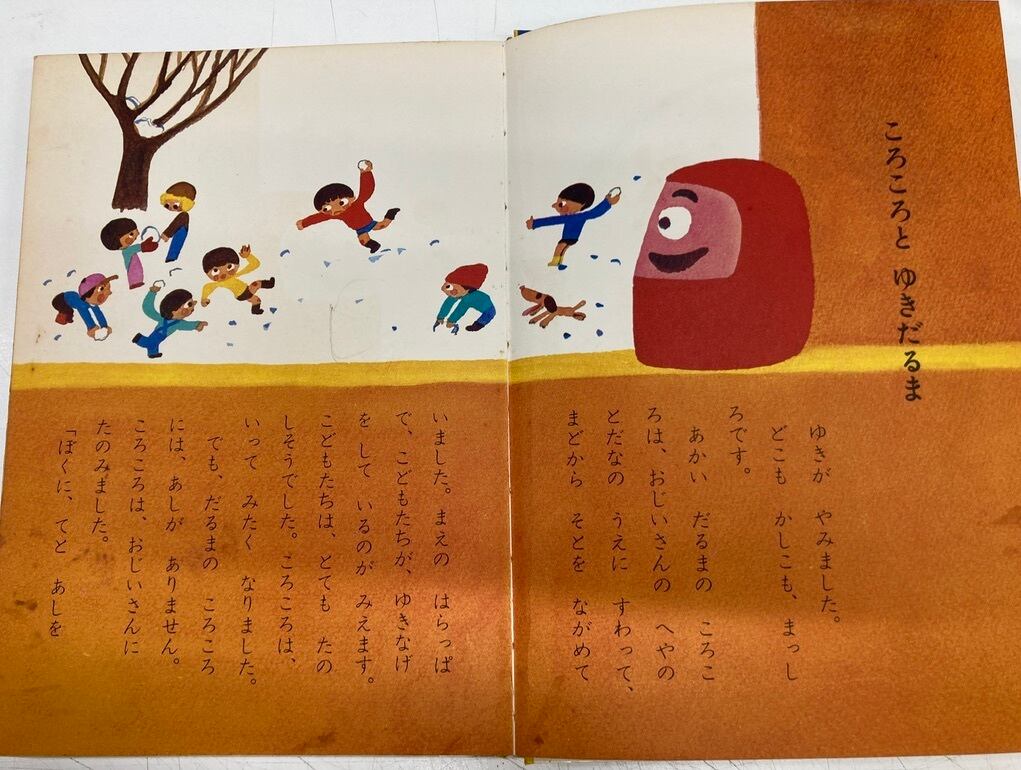 ころころと ゆきだるま
ゆきが やみました。
どこも かしこも、まっし
ろです。
あかい だるまの ころこ
ろは、おじいさんの へやの
とだなの うえに すわって、
まどから そとを ながめて
いました。まえの はらっぱ
で、こどもたちが、ゆきなげ
を して いるのが みえます。
こどもたちは、とても たの
しそうでした。ころころは、
いって みたく なりました。
でも、だるまの ころころ
には、あしが ありません。
ころころは、おじいさんに
たのみました。
「ぼくに、てと あしを